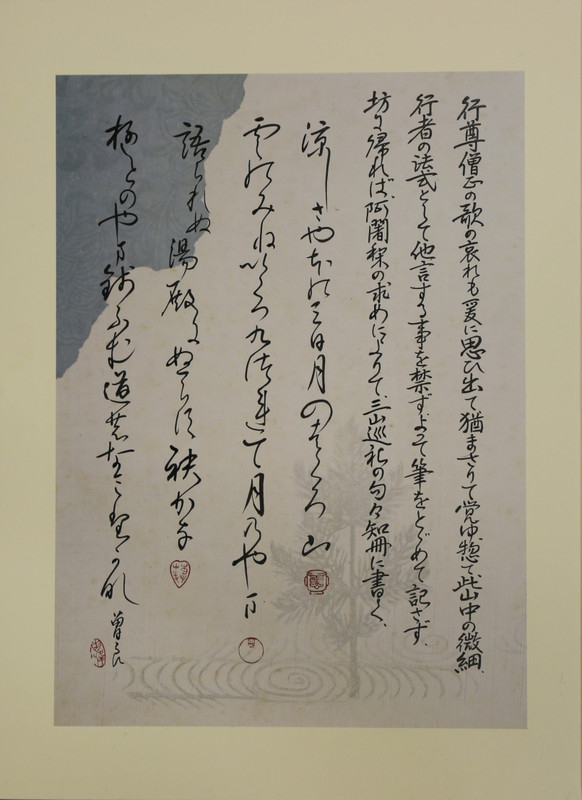 行尊僧正の歌の哀れも爰に思ひ出て猶まさりて覚ゆ。惣て此山中の微細、
行者の法式として他言する事を禁ず。よつて筆をとどめて記さず。
坊に帰れば、阿闍梨の求めによりて、三山巡礼の句々短冊に書く。
涼しさやほの三日月のはくろ山
雲のみねいくつくつれて月のやま
語られぬ湯殿にぬらす袂かな
ゆとのやま銭ふむ道のなみたかな 曽良